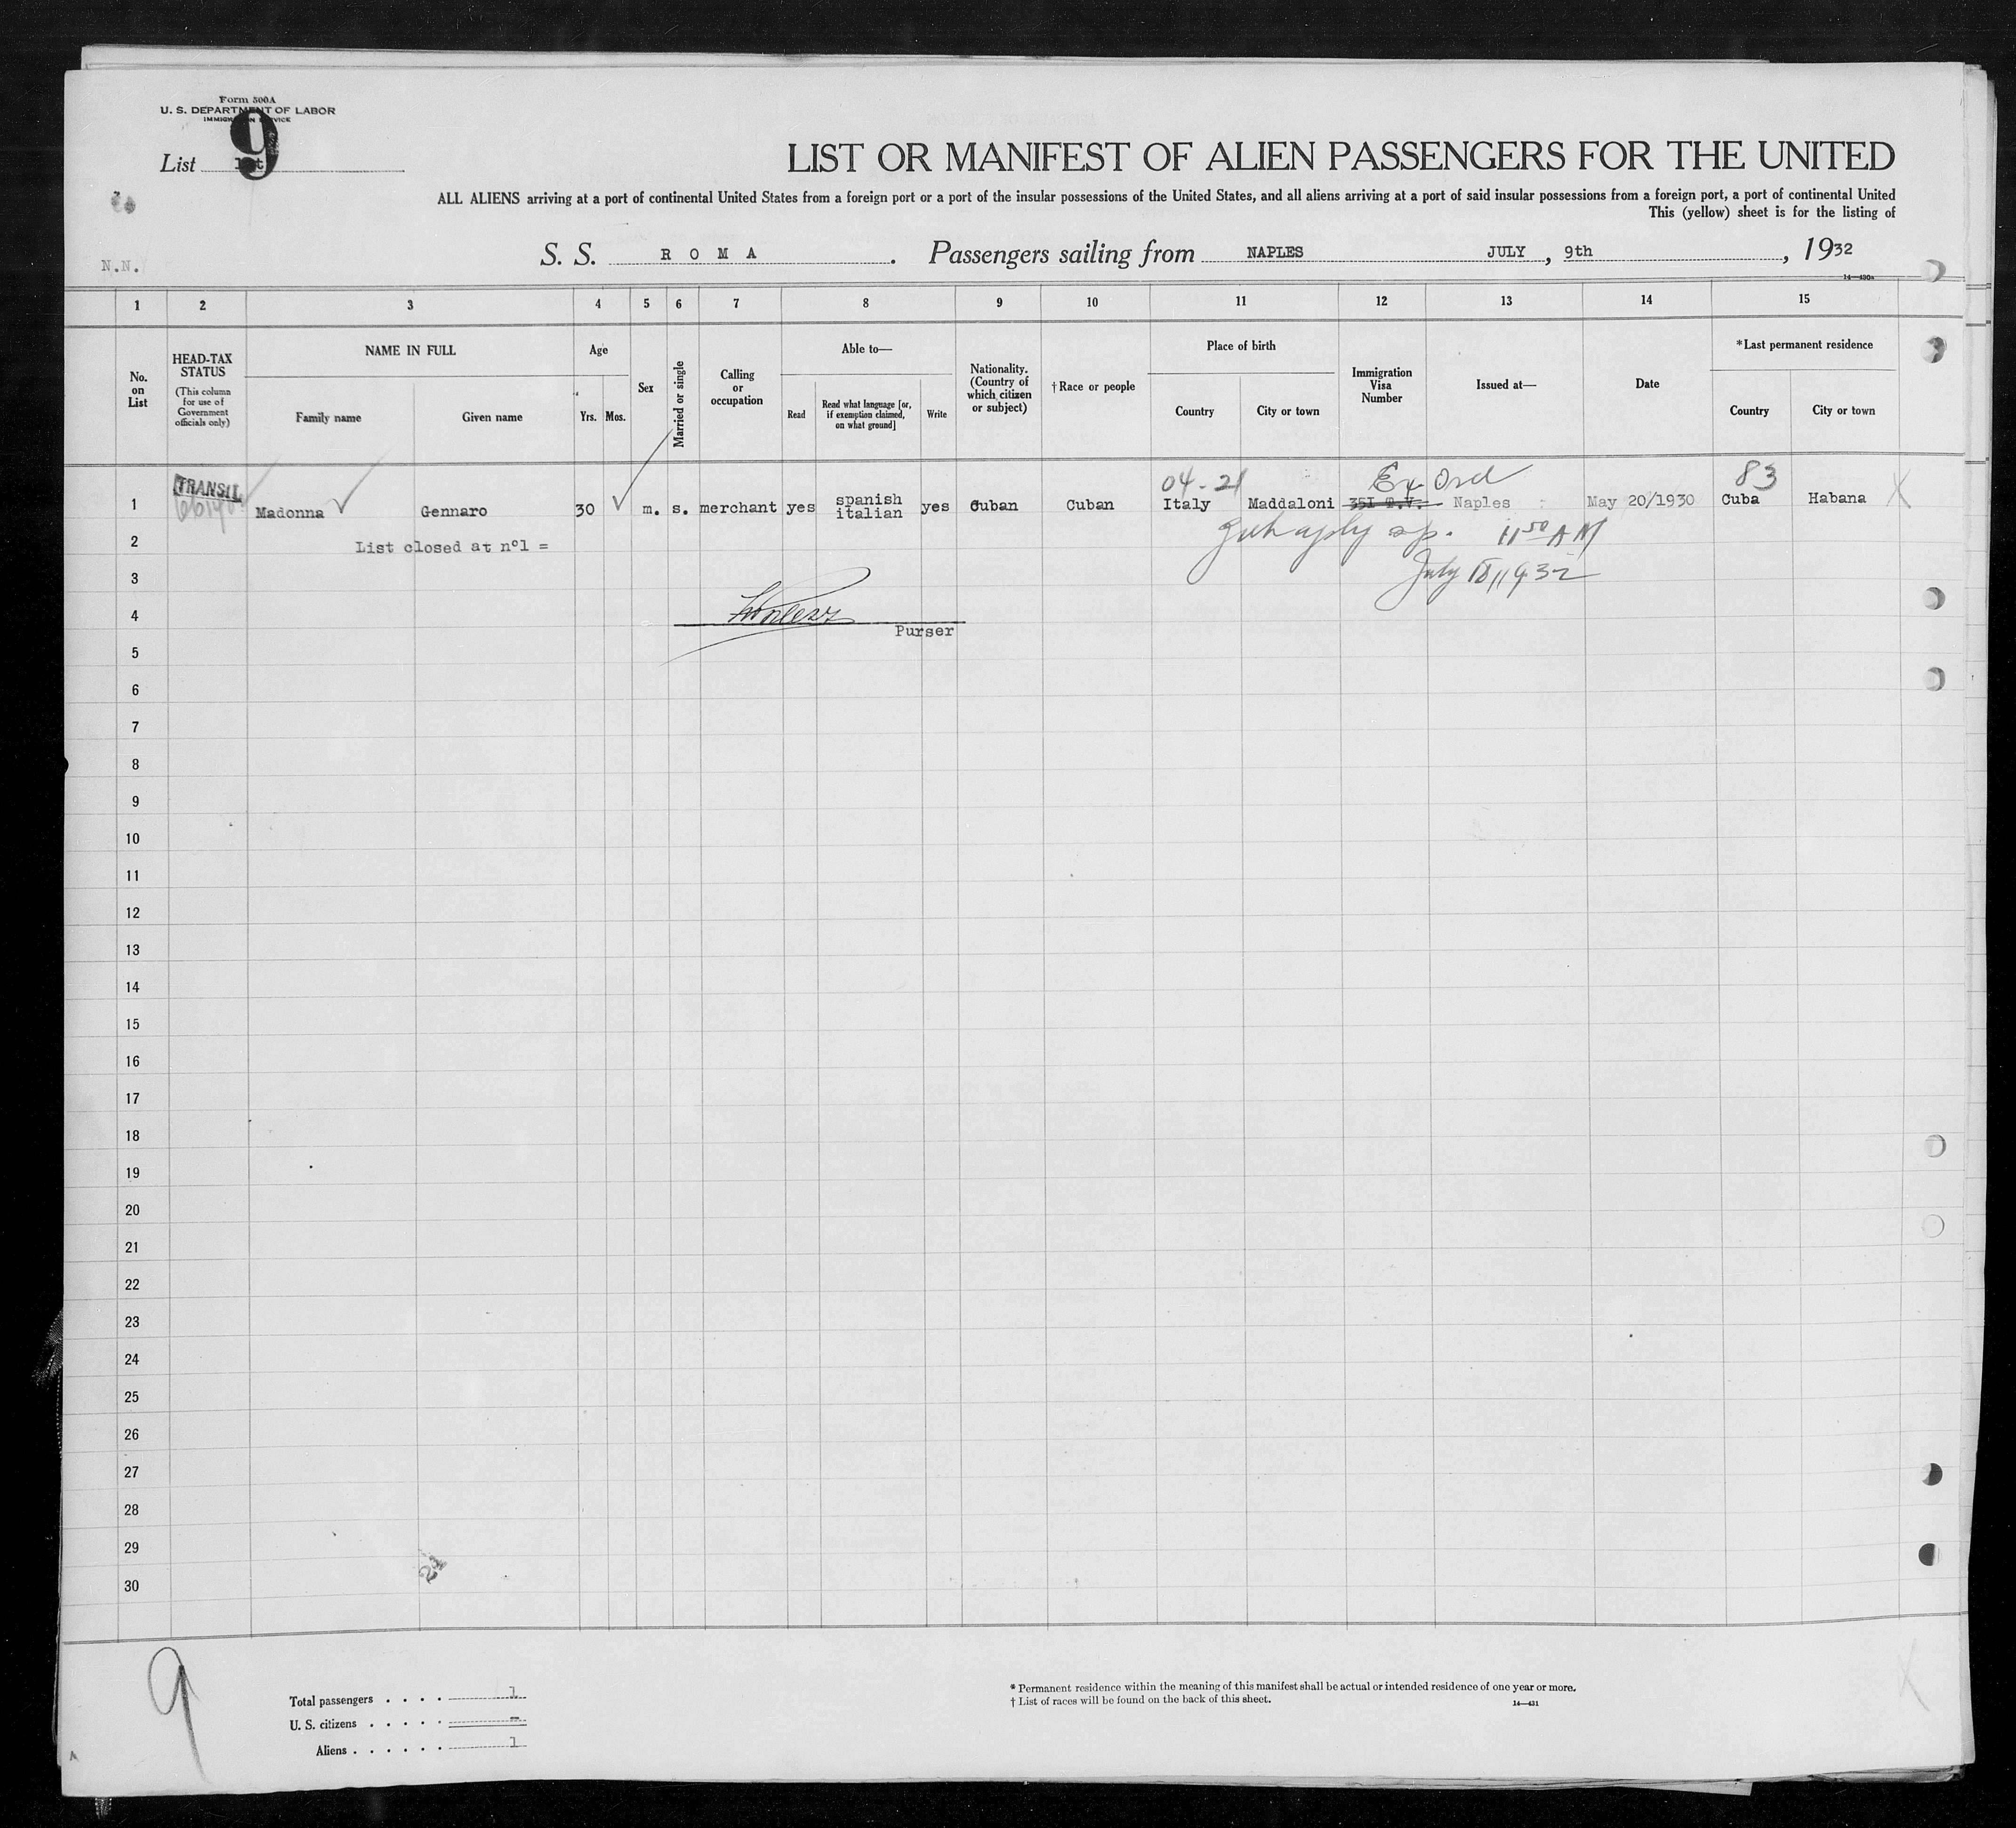 Form 500A
U. S. DEPARTMENT OF LABOR
IMMIGRATION SERVICE
9
List 1st
LIST OR MANIFEST OF ALIEN PASSENGERS FOR THE UNITED
ALL ALIENS arriving at a port of continental United States from a foreign port or a port of the insular possessions of the United States, and all aliens arriving at a port of said insular possessions from a foreign port, a port of continental United
This (yellow) sheet is for the listing of
N.N.
S. S. ROMA. Passengers sailing from NAPLES JULY, 9th, 1932
14—430a
1 2 3 4 5 6 7 8 9 10 11 12 13 14 15
No. on List
HEAD-TAX STATUS (This column for use of Government officials only)
NAME IN FULL
Family name Given name
Age
Yrs. Mos.
Sex
Married or single
Calling or occupation
Able to—
Read
Read what language [or, if exemption claimed, on what ground]
Write
Nationality. (Country of which citizen or subject)
†Race or people
Place of birth
Country City or town
Immigration Visa Number
Issued at—
Date
*Last permanent residence
Country City or town
04-21 Ex Ord 83
1 TRANSIT Madonna Gennaro 30 m. s. merchant yes spanish italian yes Cuban Cuban Italy Maddaloni 351 T.V. Naples May 20/1930 Cuba Habana X
2 List closed at n°1 = 11 50 AM
3 July 18, 1932
4
Purser
5
6
7
8
9
10
11
12
13
14
15
16
17
18
19
20
21
22
23
24
25
26
27
28
29
30
21
9
Total passengers . . . . 1
U. S. citizens . . . . . –
Aliens . . . . . . 1
* Permanent residence within the meaning of this manifest shall be actual or intended residence of one year or more.
† List of races will be found on the back of this sheet.
14—431